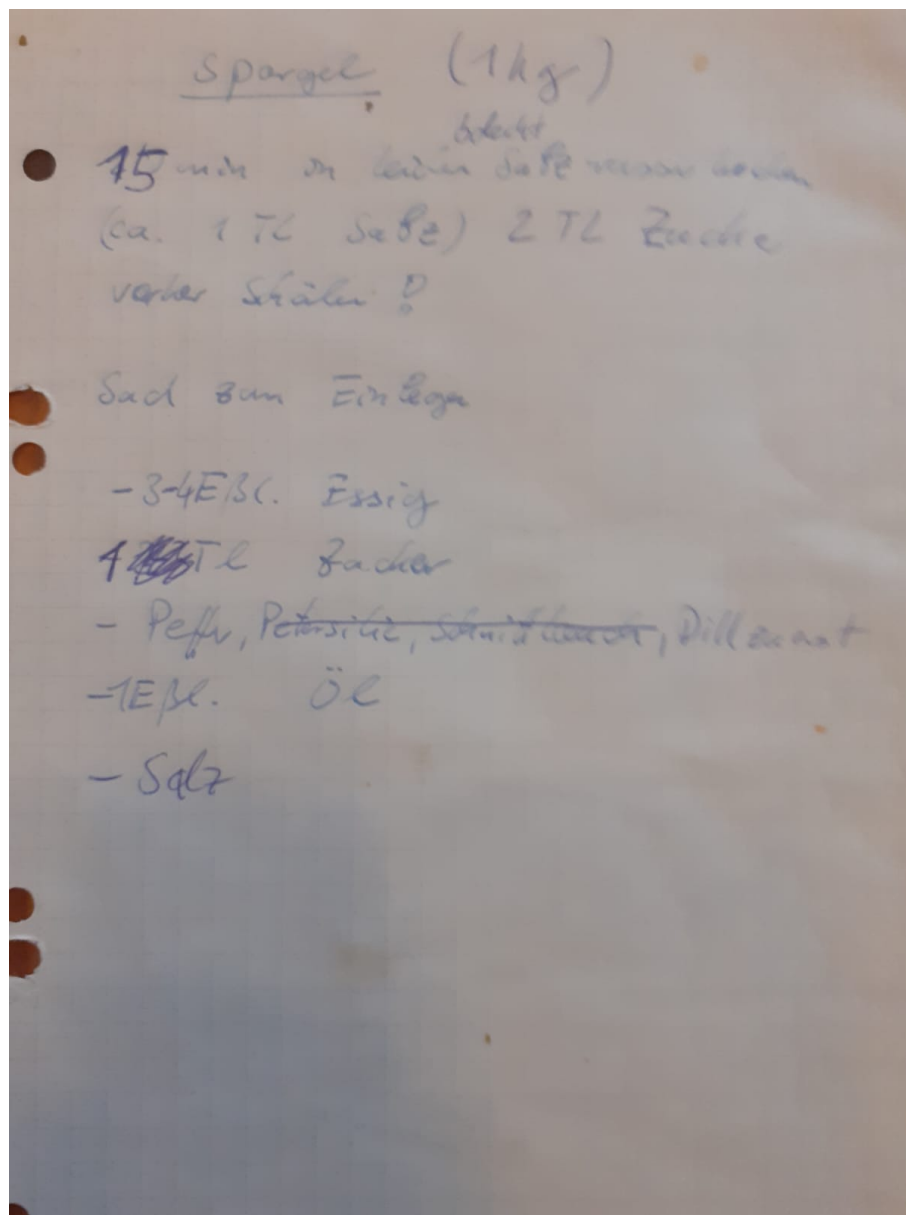 Spargel (1kg)
bedeckt
15 min in Salzwasser kochen
(ca. 1 TL Salz) 2 TL Zucker
vorher Schälen !
Sud zum Einlegen
-3-4Eßl. Essig
1 Tl Zucker
- Peffer, Petersilie, Schnittlauch, Dill
-1Eßl. Öl
- Salz